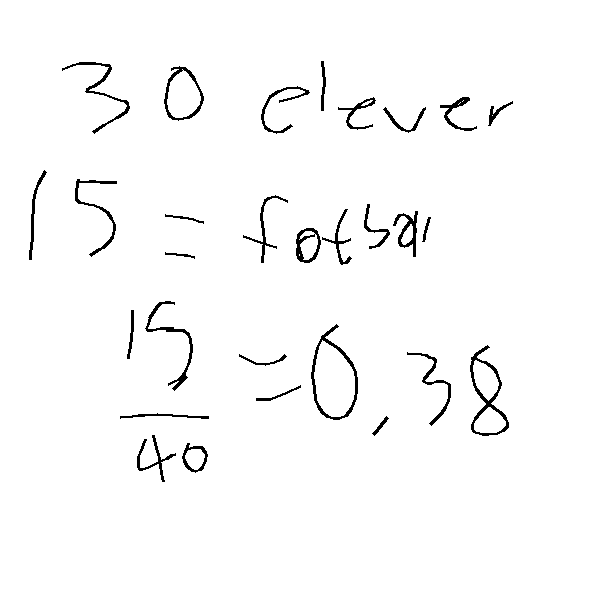 30 elever
15 = fotball
15/40 = 0,38